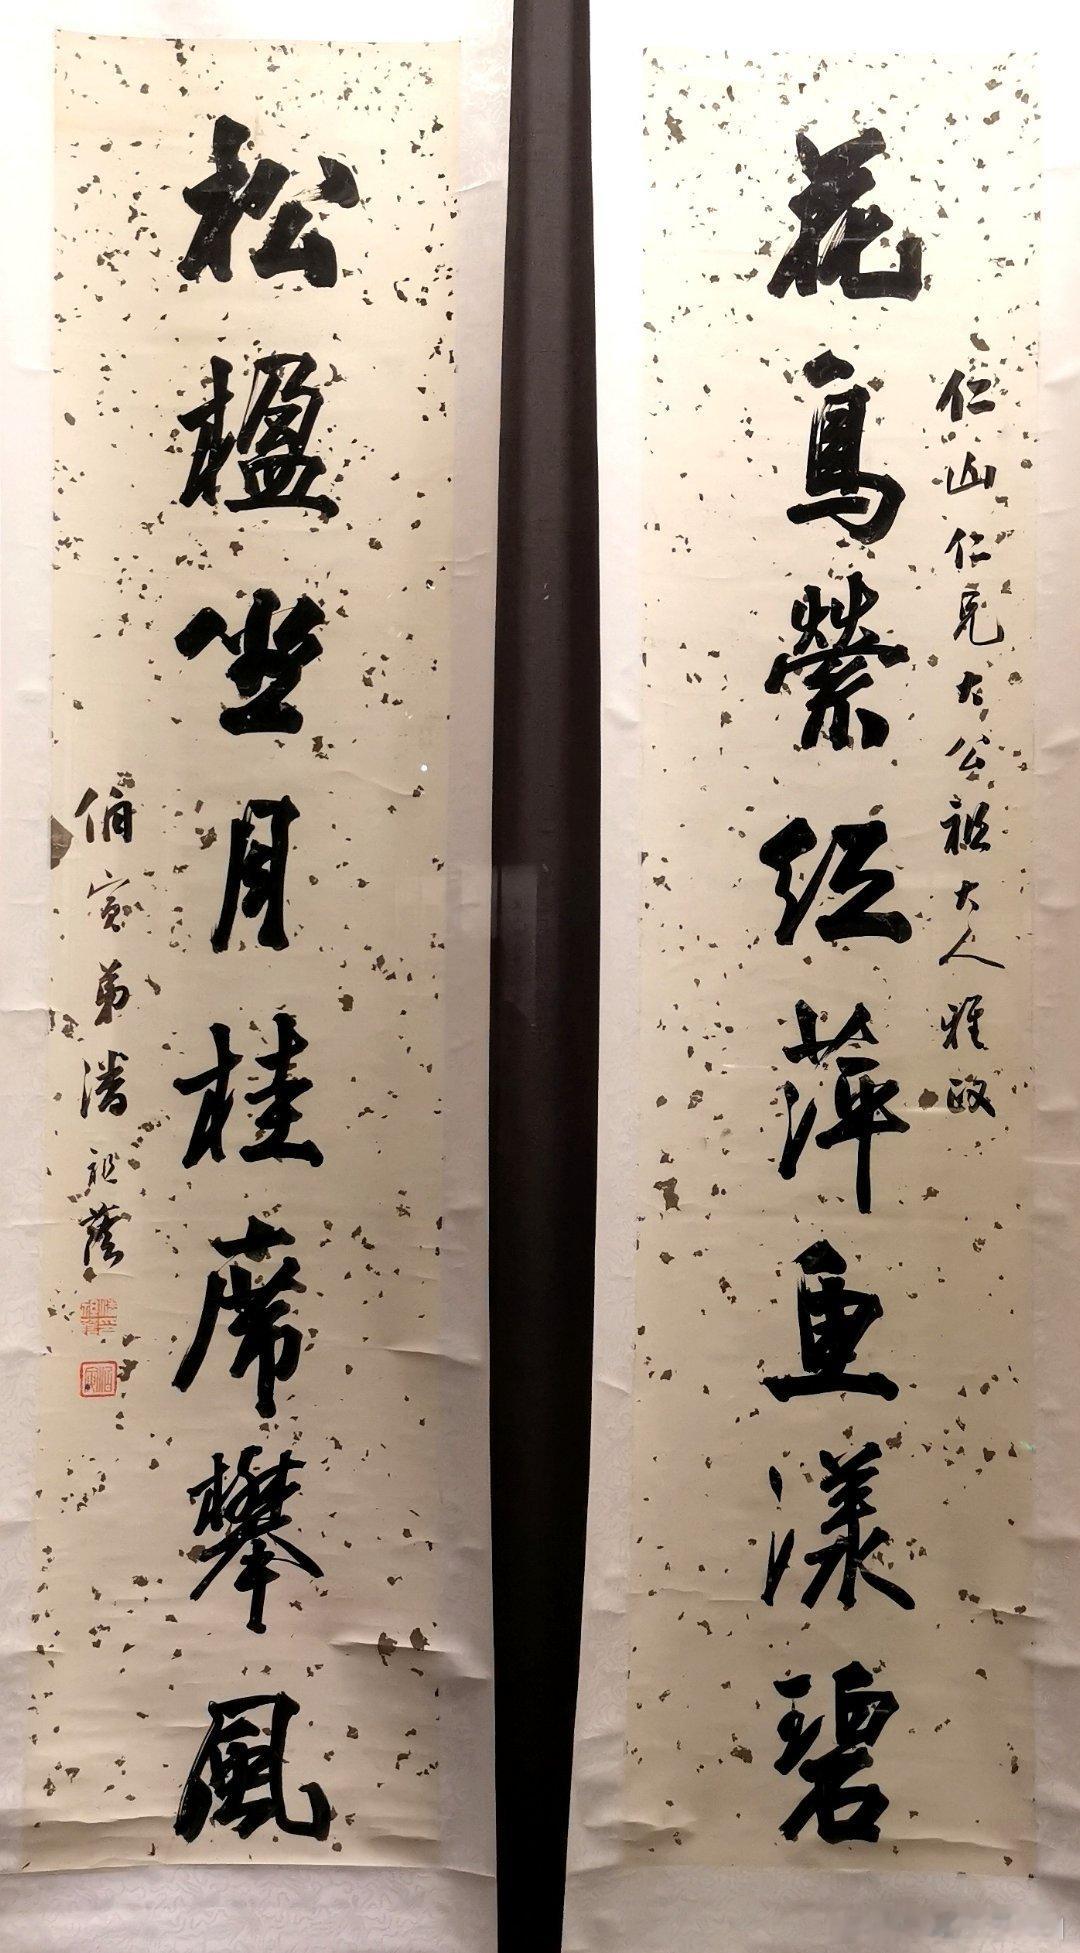 花鳥縈紅萍魚漾碧
仁山仁兄大公祖大人雅政
松楹坐月桂席攀風
寅弟潘祖蔭